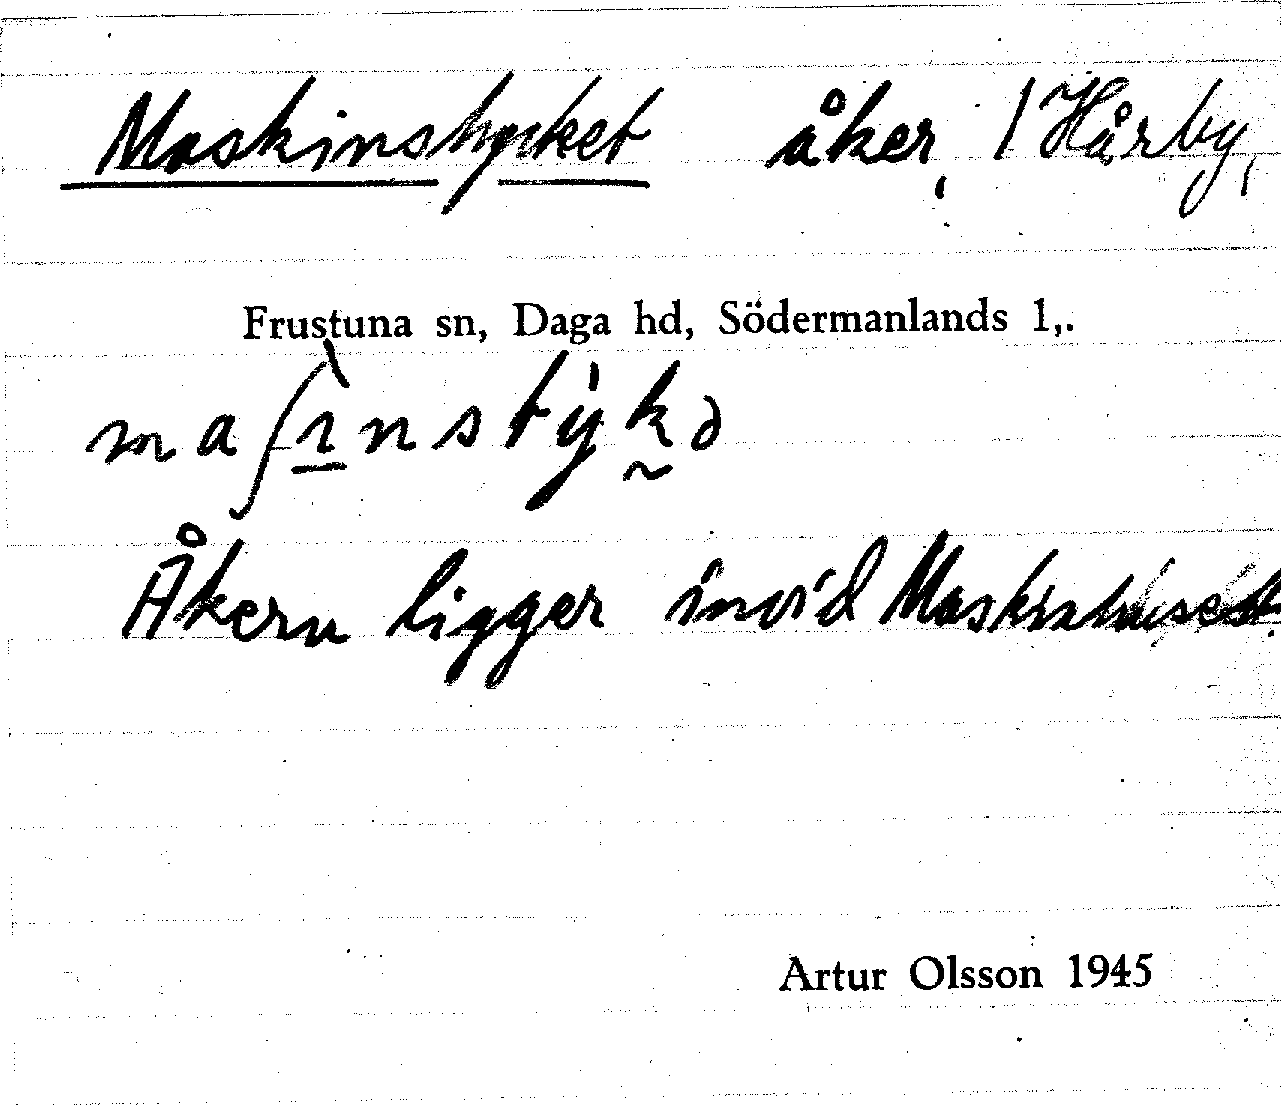 Maskinstycket åker, 1 Hårby,
Frustuna sn, Daga hd, Södermanlands l,.
maʃı̱nstýkə
Åkern ligger invid Maskinhuset.
Artur Olsson 1945